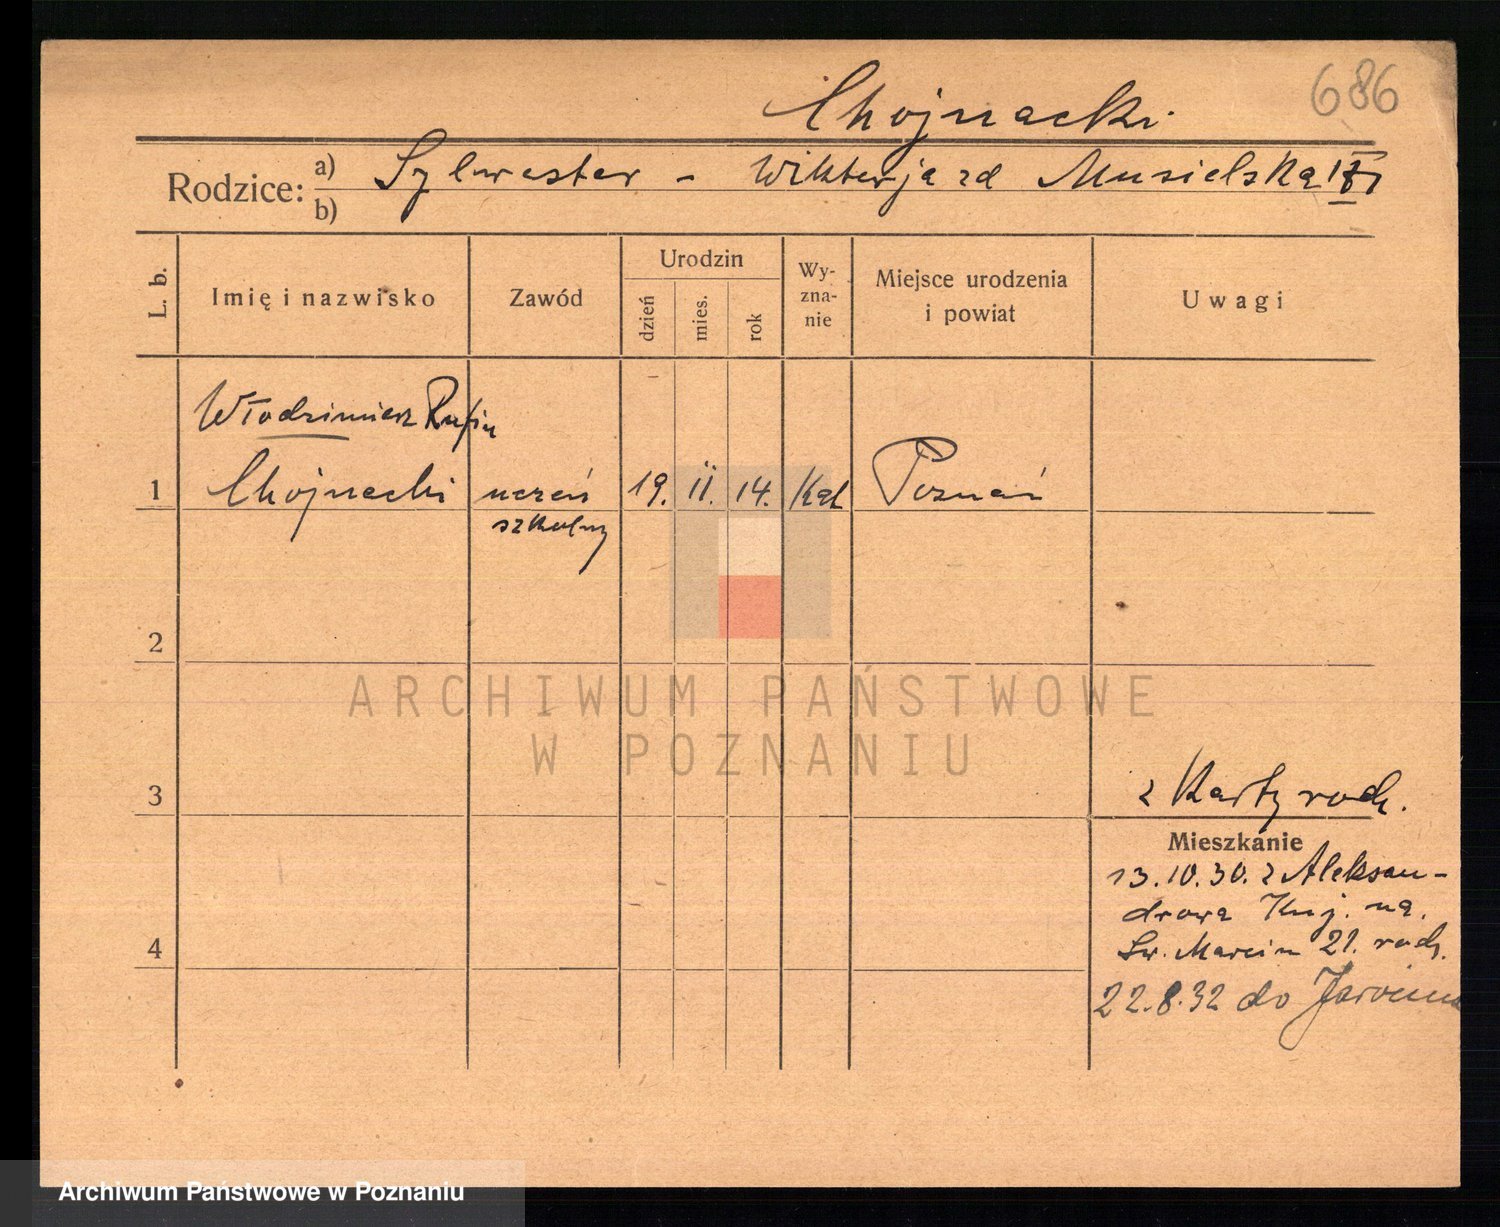 686
Chojnacki
Rodzice: a) Sylwester - Wiktorja zd Musielska
b)
L. b.
Imię i nazwisko
Zawód
Urodzin
dzień
mies.
rok
Wy-
zna-
nie
Miejsce urodzenia
i powiat
Uwagi
Włodzimierz Rufin
1 Chojnacki uczeń 19. II. 14. Kat Poznań
szkolny
2
3
z Karty rodz.
Mieszkanie
13.10.30. z Aleksan-
drowa Kuj. na.
Św. Marcin 21. rodz.
4
22.8.32 do Jarocina
ARCHIWUM PAŃSTWOWE
W POZNANIU
Archiwum Państwowe w Poznaniu